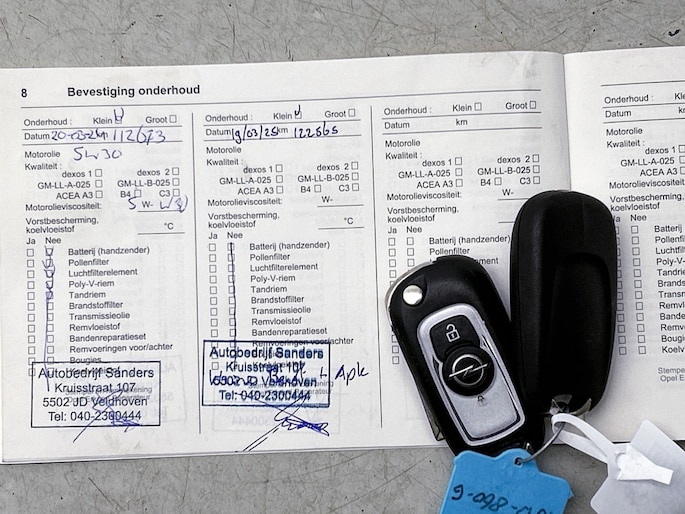 8 Bevestiging onderhoud
Onderhoud : Klein Groot
Datum 20-03-24 km 112673
Motorolie 5w30
Kwaliteit :
dexos 1 dexos 2
GM-LL-A-025 GM-LL-B-025
ACEA A3 B4 C3
Motorolieviscositeit: 5 W- 30
Vorstbescherming,
koelvloeistof °C
Ja Nee
Batterij (handzender)
Pollenfilter
Luchtfilterelement
Poly-V-riem
Tandriem
Brandstoffilter
Transmissieolie
Remvloeistof
Bandenreparatieset
Remvoeringen voor/achter
Bougies
Autobedrijf Sanders
Kruisstraat 107
5502 JD Veldhoven
Tel: 040-2300444
Onderhoud : Klein Groot
Datum 19/03/25 km 122565
Motorolie
Kwaliteit :
dexos 1 dexos 2
GM-LL-A-025 GM-LL-B-025
ACEA A3 B4 C3
Motorolieviscositeit: W-
Vorstbescherming,
koelvloeistof °C
Ja Nee
Batterij (handzender)
Pollenfilter
Luchtfilterelement
Poly-V-riem
Tandriem
Brandstoffilter
Transmissieolie
Remvloeistof
Bandenreparatieset
Remvoeringen voor/achter
Autobedrijf Sanders
Kruisstraat 107
5502 JD Veldhoven
Tel: 040-2300444
+ Apk
Onderhoud : Klein Groot
Datum km
Motorolie
Kwaliteit :
dexos 1 dexos 2
GM-LL-A-025 GM-LL-B-025
ACEA A3 B4 C3
Motorolieviscositeit: W-
Vorstbescherming,
koelvloeistof
Ja Nee
Batterij (handzender)
Onderhoud : Kle
Datum
Motorolie
Kwaliteit :
dexos 1
GM-LL-A-025
ACEA A3
Motorolieviscosite
Vorstbescherming,
koelvloeistof
Ja Nee
Batterij
Pollenf
Luchtfi
Poly-V
Tandri
Brands
Transm
Remvlo
Banden
Remvo
Bougies
Koelvlo
Stempe
Opel E